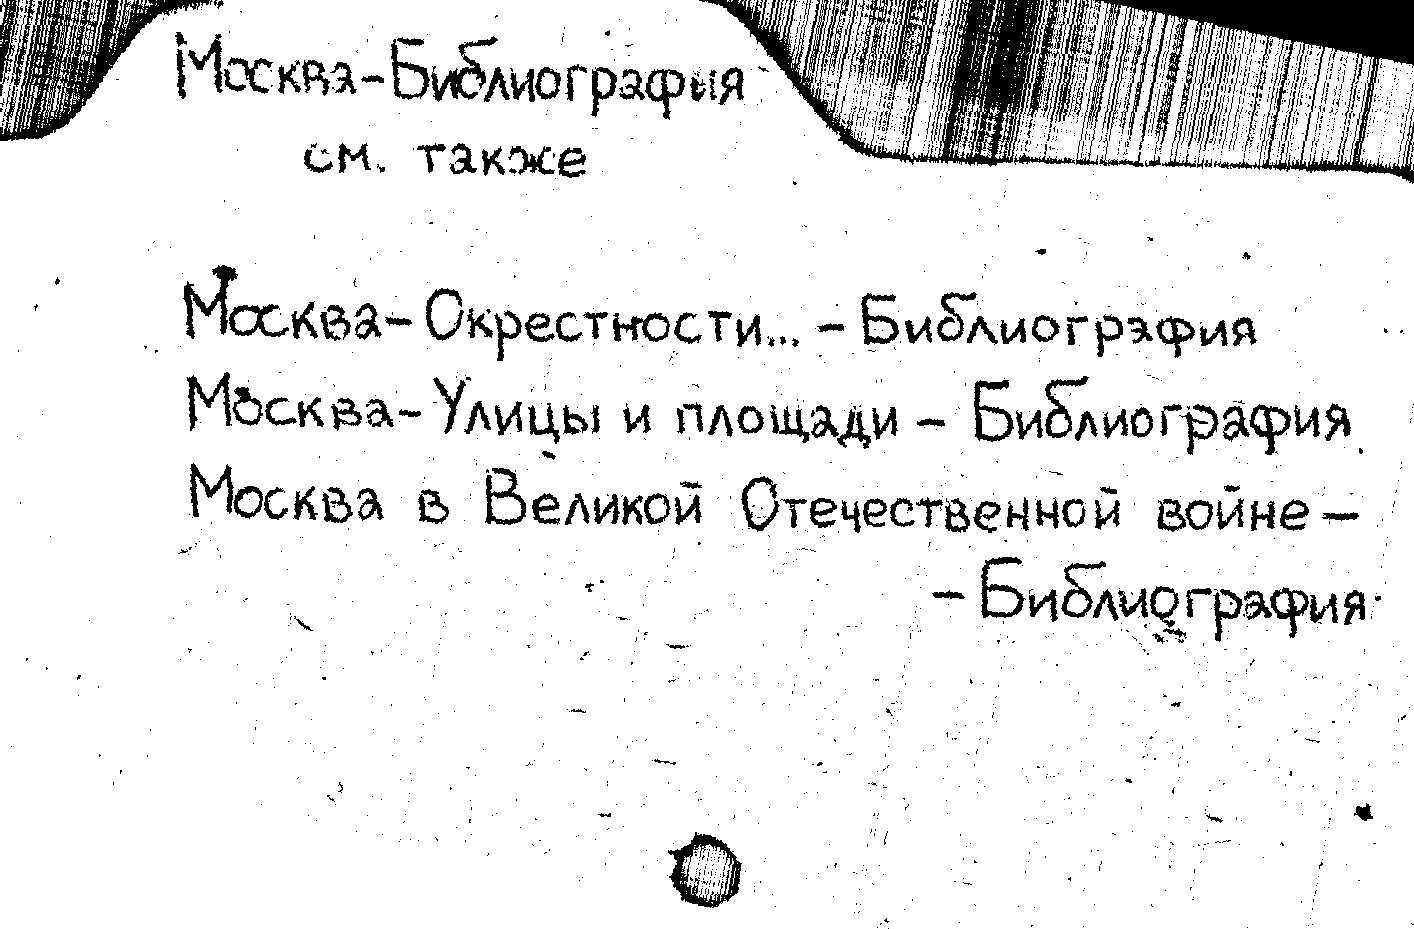 Москва-Библиография
см. также
Москва-Окрестности... - Библиография
Москва-Улицы и площади - Библиография
Москва в Великой Отечественной войне -
- Библиография